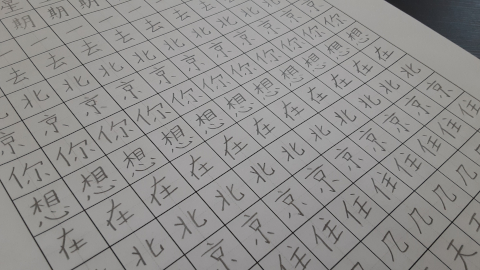 明明明
一一一一一一一
去去去去去去去去去
北北北北北北北北北北
京京京京京京京京京京京
你你你你你你你你你你你
想想想想想想想想想想想
在在在在在在在在在在在
北北北北北北北北北北
京京京京京京京京京
住住住住住住住住
几几几几几
天天